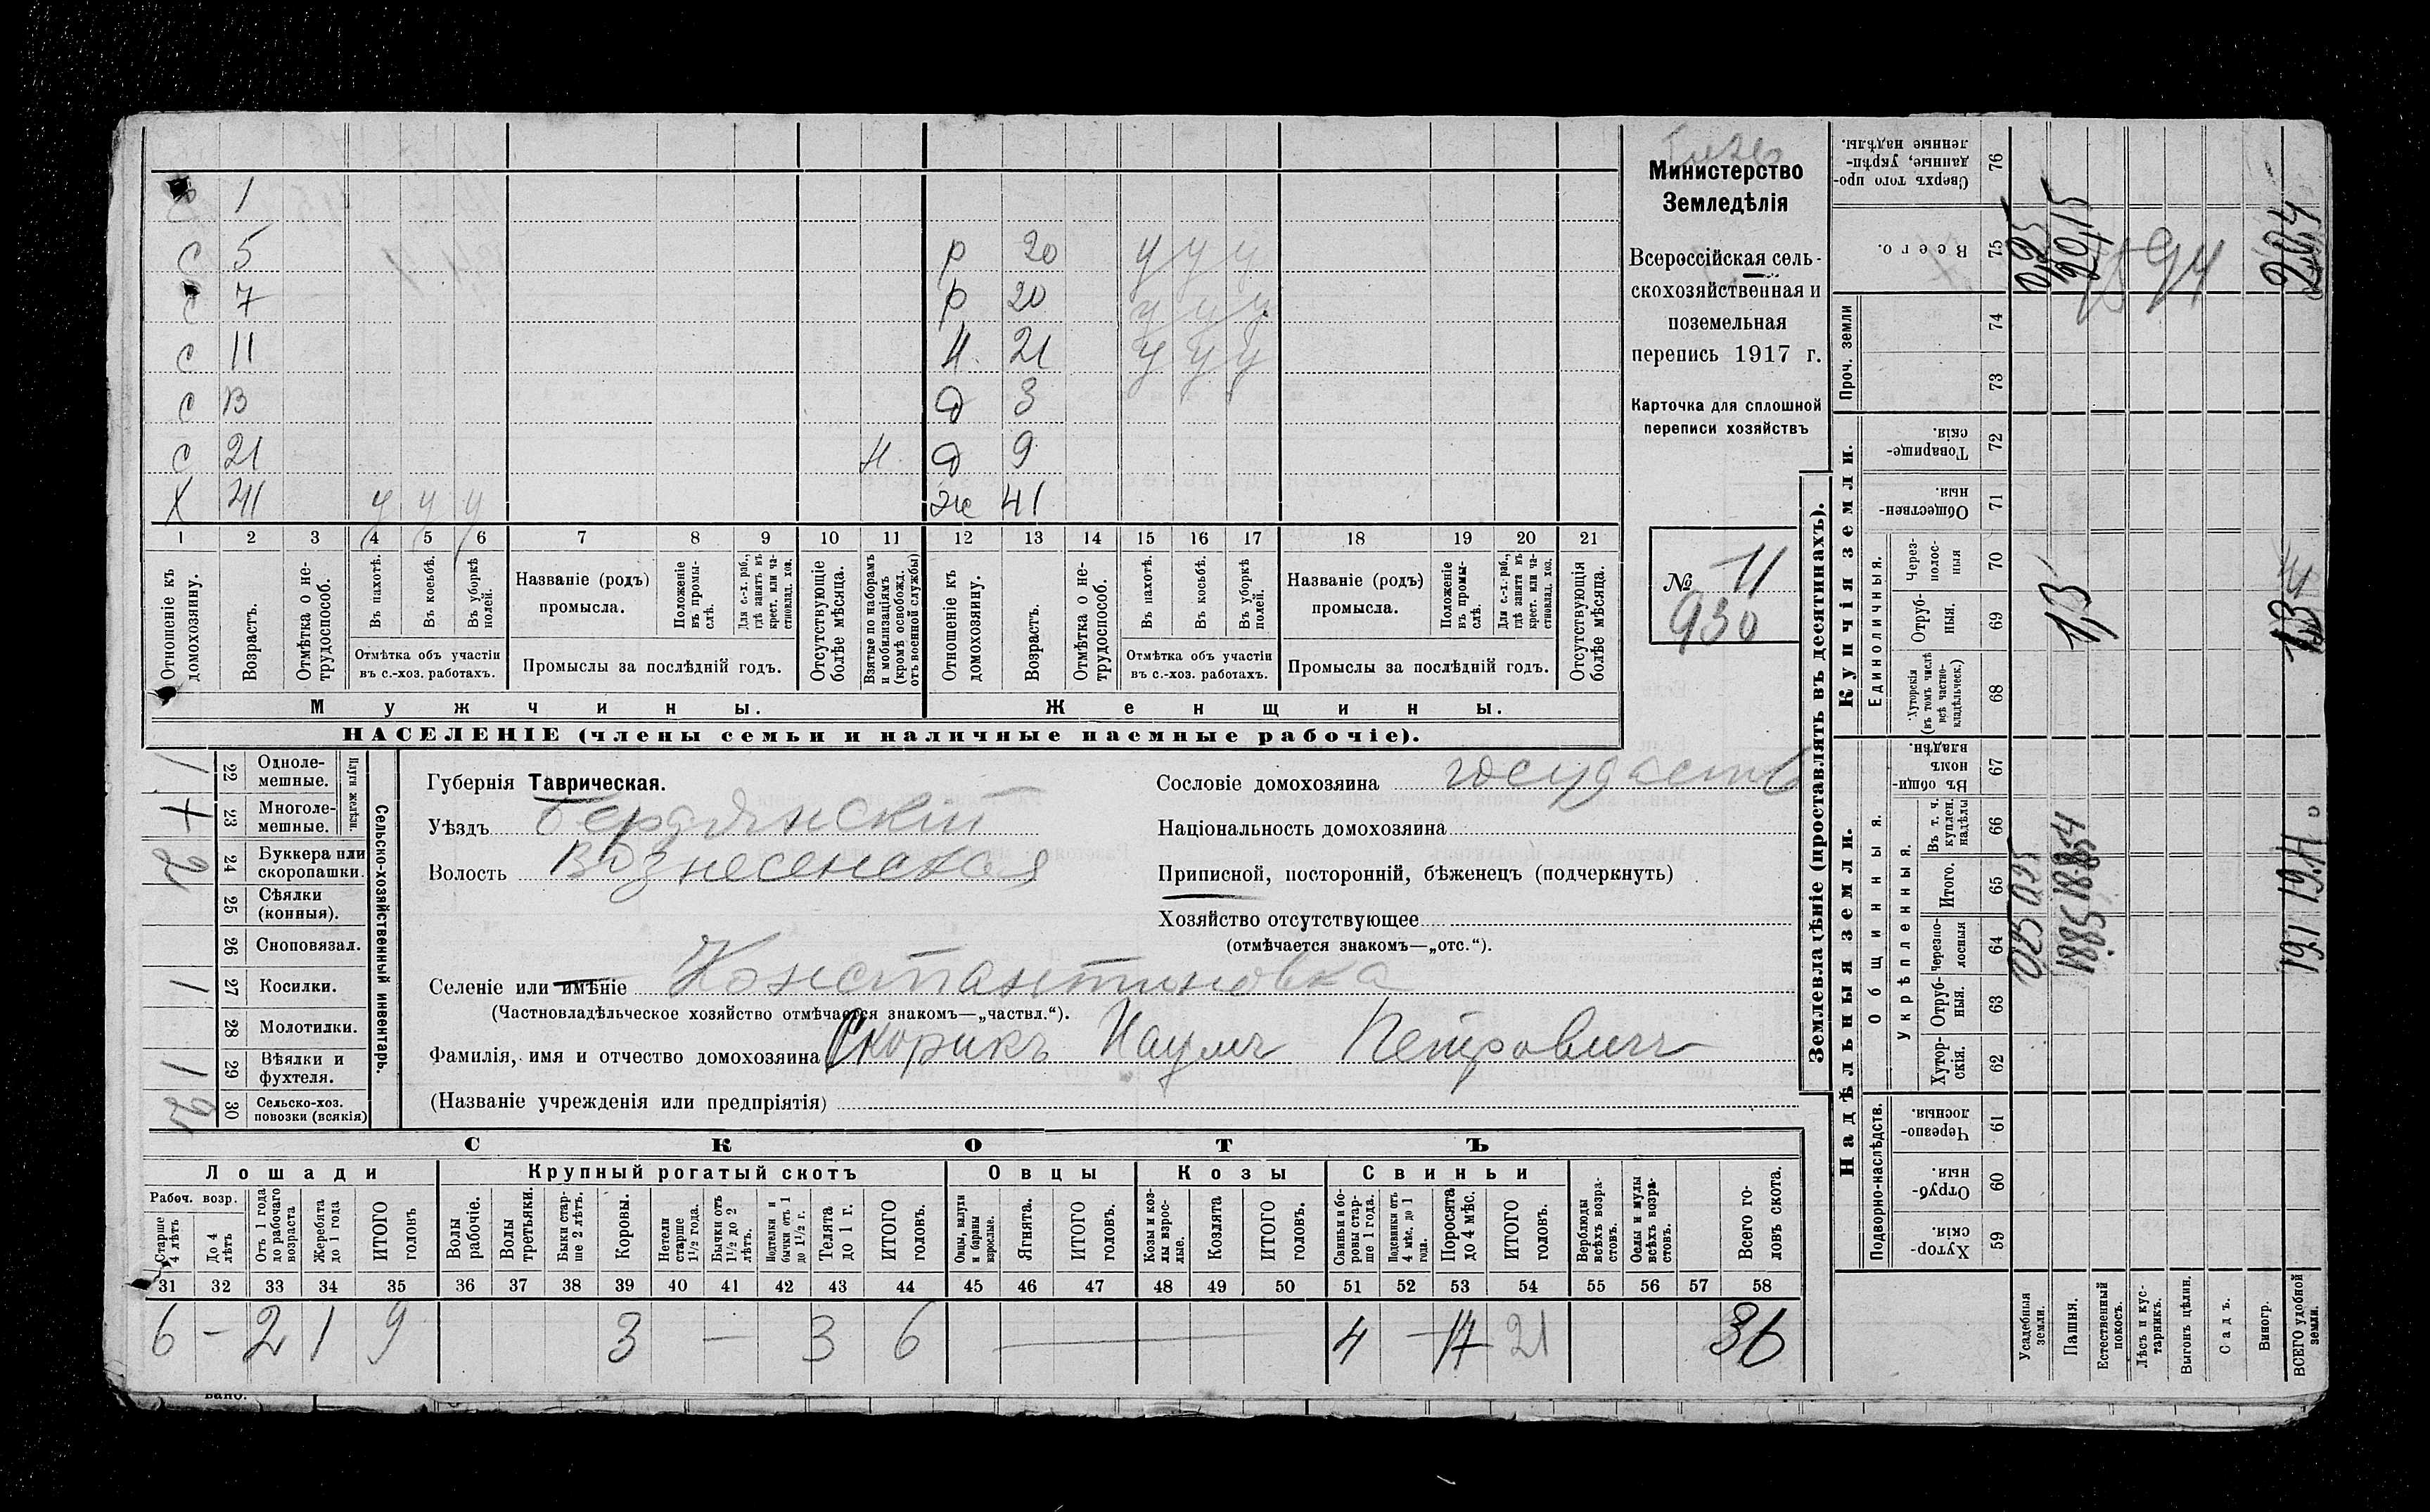 1
С 5 р 20 у у у
С 7 р 20 у у у
С 11 Н. 21 у у у
С 13 д 3
С 21 Н д 9
Х 41 у у у ж 41
1 2 3 4 5 6 7 8 9 10 11 12 13 14 15 16 17 18 19 20 21
Отношеніе къ домохозяину.
Возрастъ.
Отмѣтка о нетрудоспособ.
Въ пахотѣ.
Въ косьбѣ.
Въ уборкѣ полей.
Отмѣтка объ участіи
въ с.-хоз. работахъ.
Названіе (родъ)
промысла.
Положеніе въ промыслѣ.
Для с.-х. раб., гдѣ занятъ въ крест. или частновлад. хоз.
Промыслы за послѣдній годъ.
Отсутствующіе болѣе мѣсяца.
Взятые по наборамъ и мобилизаціямъ (кромѣ освобожд. отъ военной службы)
Отношеніе къ домохозяину.
Возрастъ.
Отмѣтка о нетрудоспособ.
Въ пахотѣ.
Въ косьбѣ.
Въ уборкѣ полей.
Отмѣтка объ участіи
въ с.-хоз. работахъ.
Названіе (родъ)
промысла.
Положеніе въ промыслѣ.
Для с.-х. раб., гдѣ занята въ крест. или частновлад. хоз.
Промыслы за послѣдній годъ.
Отсутствующія болѣе мѣсяца.
Мужчины. Женщины.
НАСЕЛЕНІЕ (члены семьи и наличные наемные рабочіе).
Министерство
Земледѣлія
Всероссійская сель-
скохозяйственная и
поземельная
перепись 1917 г.
Карточка для сплошной
переписи хозяйствъ
№ 11
930
Сельско-хозяйственный инвентарь.
Плуги желѣзн.
1 22 Одноле-
мешные.
+ 23 Многоле-
мешные.
2 24 Буккера или
скоропашки.
25 Сѣялки
(конныя).
26 Сноповязал.
1 27 Косилки.
28 Молотилки.
1 29 Вѣялки и
фухтеля.
2 30 Сельско-хоз.
повозки (всякія)
Губернія Таврическая.
Уѣздъ Бердянскій
Волость Вознесенская
Сословіе домохозяина государств
Національность домохозяина
Приписной, посторонній, бѣженецъ (подчеркнуть)
Хозяйство отсутствующее
(отмѣчается знакомъ—„отс.“).
Селеніе или имѣніе Константиновка
(Частновладѣльческое хозяйство отмѣчается знакомъ—„частвл.“).
Фамилія, имя и отчество домохозяина Скорикъ Наумъ Петровичъ
(Названіе учрежденія или предпріятія)
СКОТЪ
Лошади Крупный рогатый скотъ Овцы Козы Свиньи
Рабоч. возр.
Старше 4 лѣтъ
До 4 лѣтъ
Отъ 1 года до рабочаго возраста
Жеребята до 1 года
ИТОГО головъ
Волы рабочіе.
Волы третьяки.
Быки старше 2 лѣтъ.
Коровы.
Нетели старше 1½ года.
Бычки отъ 1½ до 2 лѣтъ.
Нетелки и бычки отъ 1 до 1½ г.
Телята до 1 г.
ИТОГО головъ.
Овцы, валухи и бараны взрослые.
Ягнята.
ИТОГО головъ.
Козы и козлы взрослые.
Козлята
ИТОГО головъ.
Свиньи и боровы старше 1 года.
Подсвинки отъ 4 мѣс. до 1 года.
Поросята до 4 мѣс.
ИТОГО головъ.
Верблюды всѣхъ возрастовъ.
Ослы и мулы всѣхъ возрастовъ.
Всего головъ скота.
31 32 33 34 35 36 37 38 39 40 41 42 43 44 45 46 47 48 49 50 51 52 53 54 55 56 57 58
6 – 2 1 9 3 — 3 6 — 4 — 17 21 36
Землевладѣніе (проставлять въ десятинахъ).
Сверхъ того проданные, укрѣпленные надѣлы. 76
Всего. 75
Проч. земли 74 73
Купчія земли.
Товарищескія. 72
Общественныя. 71
Единоличныя.
Черезполосныя 70
Отрубныя. 69
Хуторскія (въ томъ числѣ всѣ частновладѣльческ.) 68
Надѣльныя земли.
Общинныя.
Въ общинномъ владѣн. 67
Укрѣпленныя.
Въ т. ч. куплен. надѣлы 66
Итого. 65
Черезполосныя 64
Отрубныя. 63
Хуторскія. 62
Подворно-наслѣдств.
Черезполосныя 61
Отрубныя. 60
Хуторскія. 59
Усадебныя земли. 025 025 0,25
Пашня. 1885 1885 1,3 20,15
Естественный покосъ.
Лѣсъ и кустарникъ.
Выгонъ цѣлин.
Садъ.
Виногр.
ВСЕГО удобной земли. 19,1 19,1 1,3 20,4
594
вано.